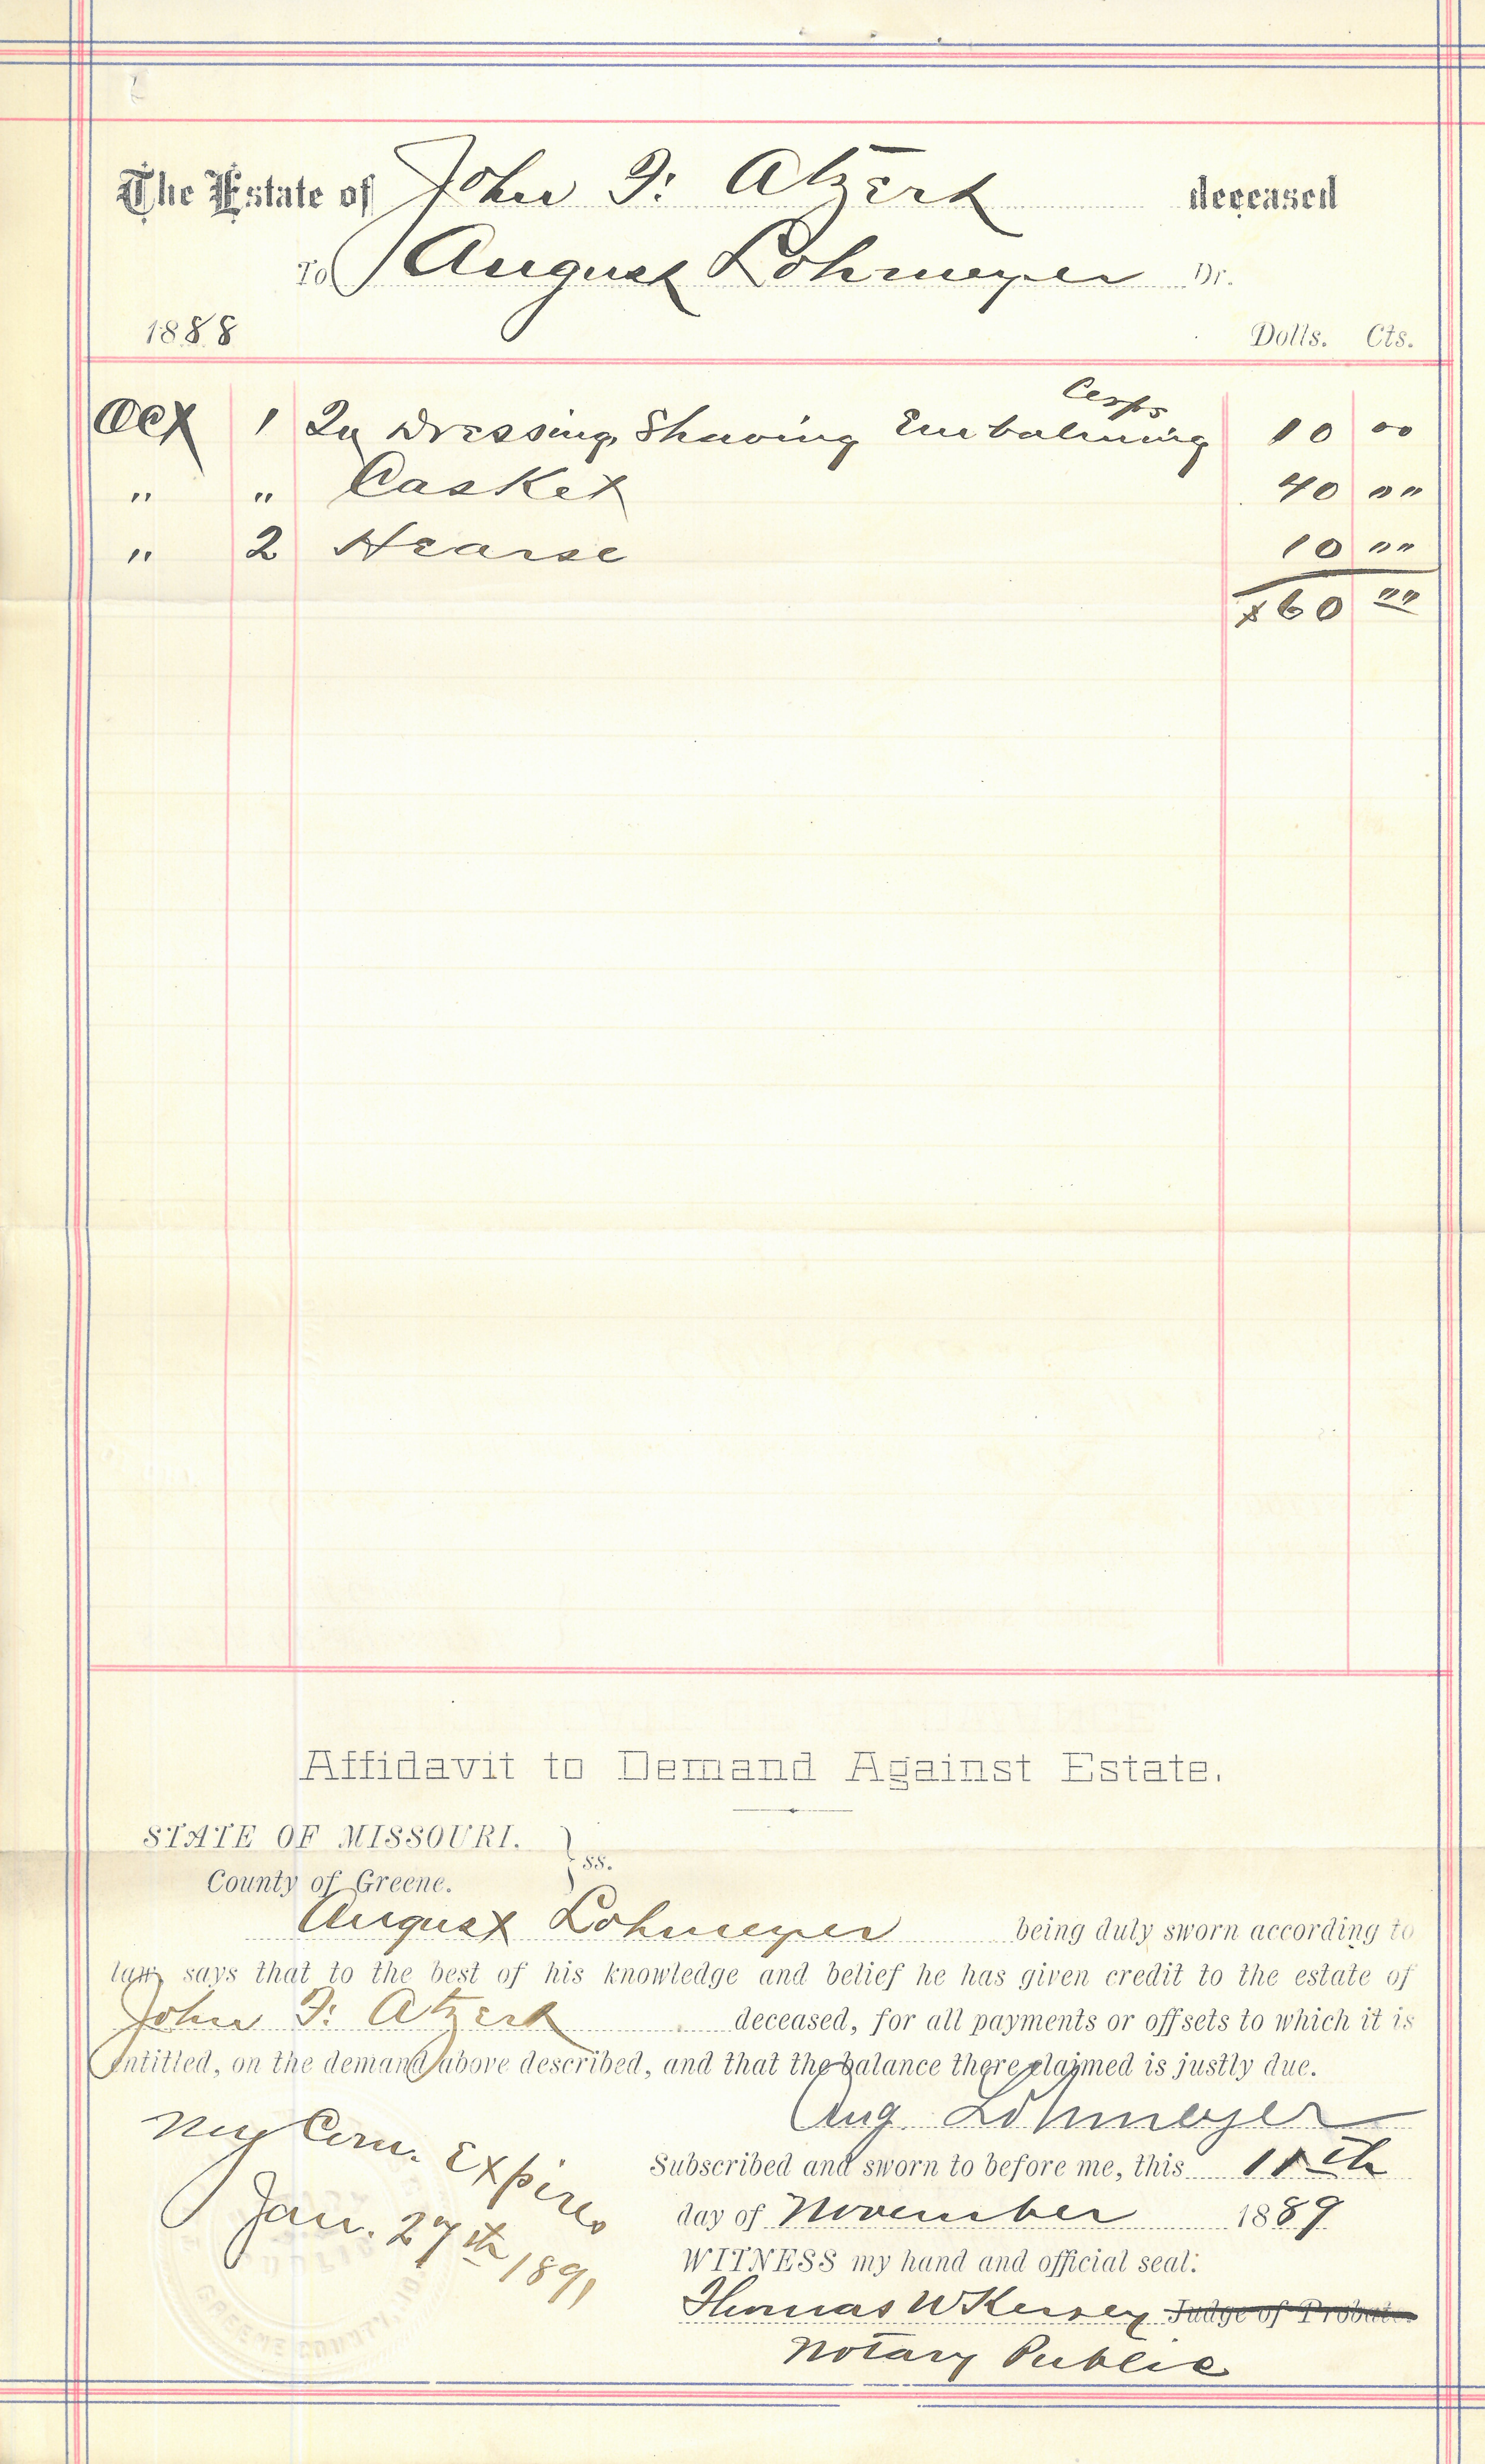 The Estate of John F: Atzert deceased
To August Lohmeyer Dr.
1888 Dolls. Cts.
Corps
Oct 1 Dressing, Shaving Embalming 10 00
" " Casket 40 ""
" 2 Hearse 10 ""
$60 ""
Affidavit to Demand Against Estate.
STATE OF MISSOURI. } ss.
County of Greene.
August Lohmeyer being duly sworn according to
law, says that to the best of his knowledge and belief he has given credit to the estate of
John F: Atzert deceased, for all payments or offsets to which it is
entitled, on the demand above described, and that the balance there claimed is justly due.
Aug. Lohmeyer
My Com. Expires
Jan. 27th 1891
Subscribed and sworn to before me, this
day of November 1889
WITNESS my hand and official seal:
Thomas W Kersey Judge of Probate.
Notary Public
GREENE COUNTY, MO